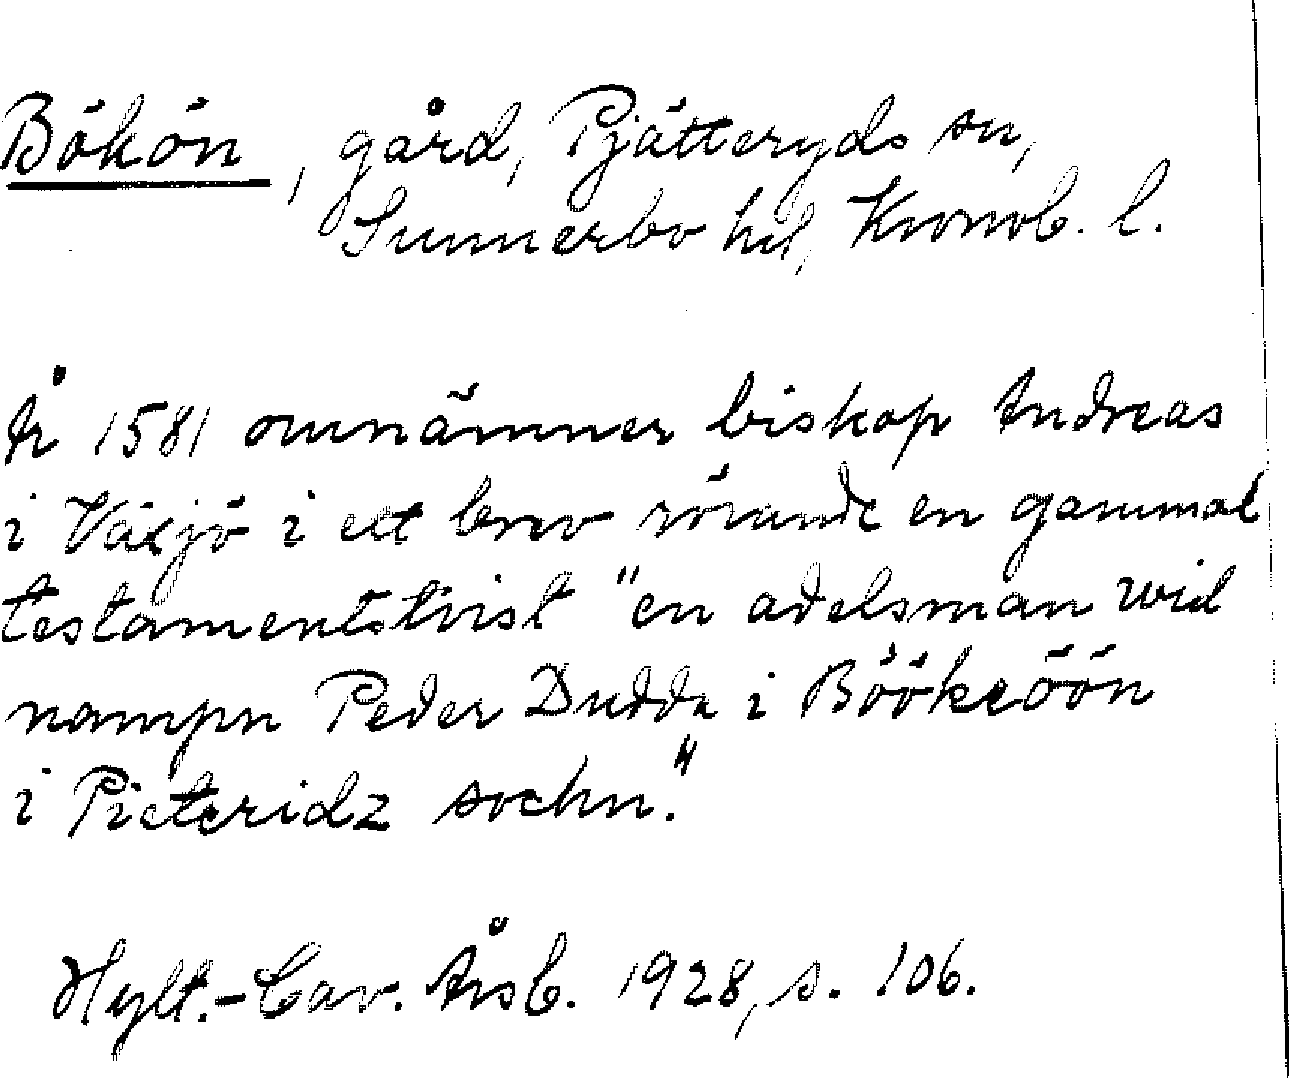 Bökön, gård, Pjätteryds sn,
Sunnerbo hd, Kronob. l.
År 1581 omnämner biskop Andreas
i Växjö i ett brev rörande en gammal
testamentstvist "en adelsman wid
nampn Peder Dudde i Böökeöön
i Pieteridz sochn."
Hylt.-Cav. Årsb. 1928, s. 106.